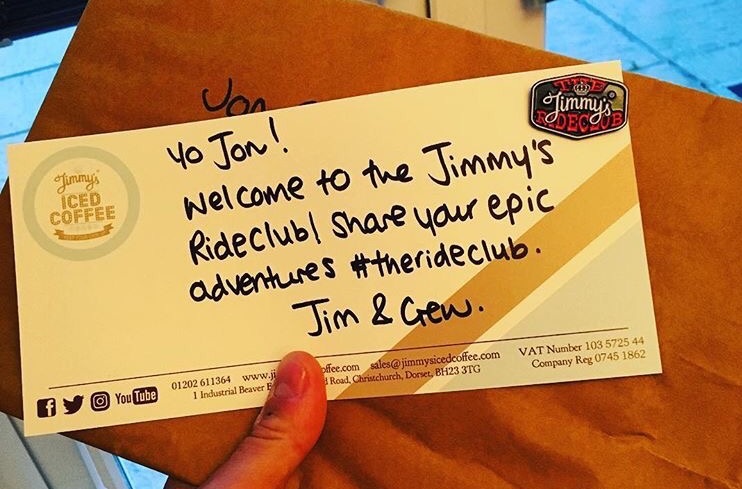 Jon
THE
Jimmy's
RIDECLUB
Jimmy's
ICED
COFFEE
Yo Jon!
Welcome to the Jimmy's
Rideclub! Share your epic
adventures #therideclub.
Jim & Crew.
01202 611364 www.ji ffee.com sales@jimmysicedcoffee.com
1 Industrial Beaver Road, Christchurch, Dorset, BH23 3TG
VAT Number 103 5725 44
Company Reg 0745 1862
f
You Tube